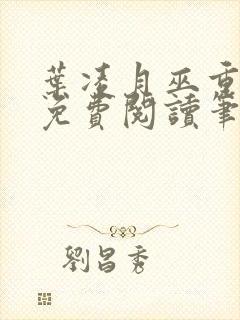 葉凌月巫重
免費閱讀筆
劉昌秀